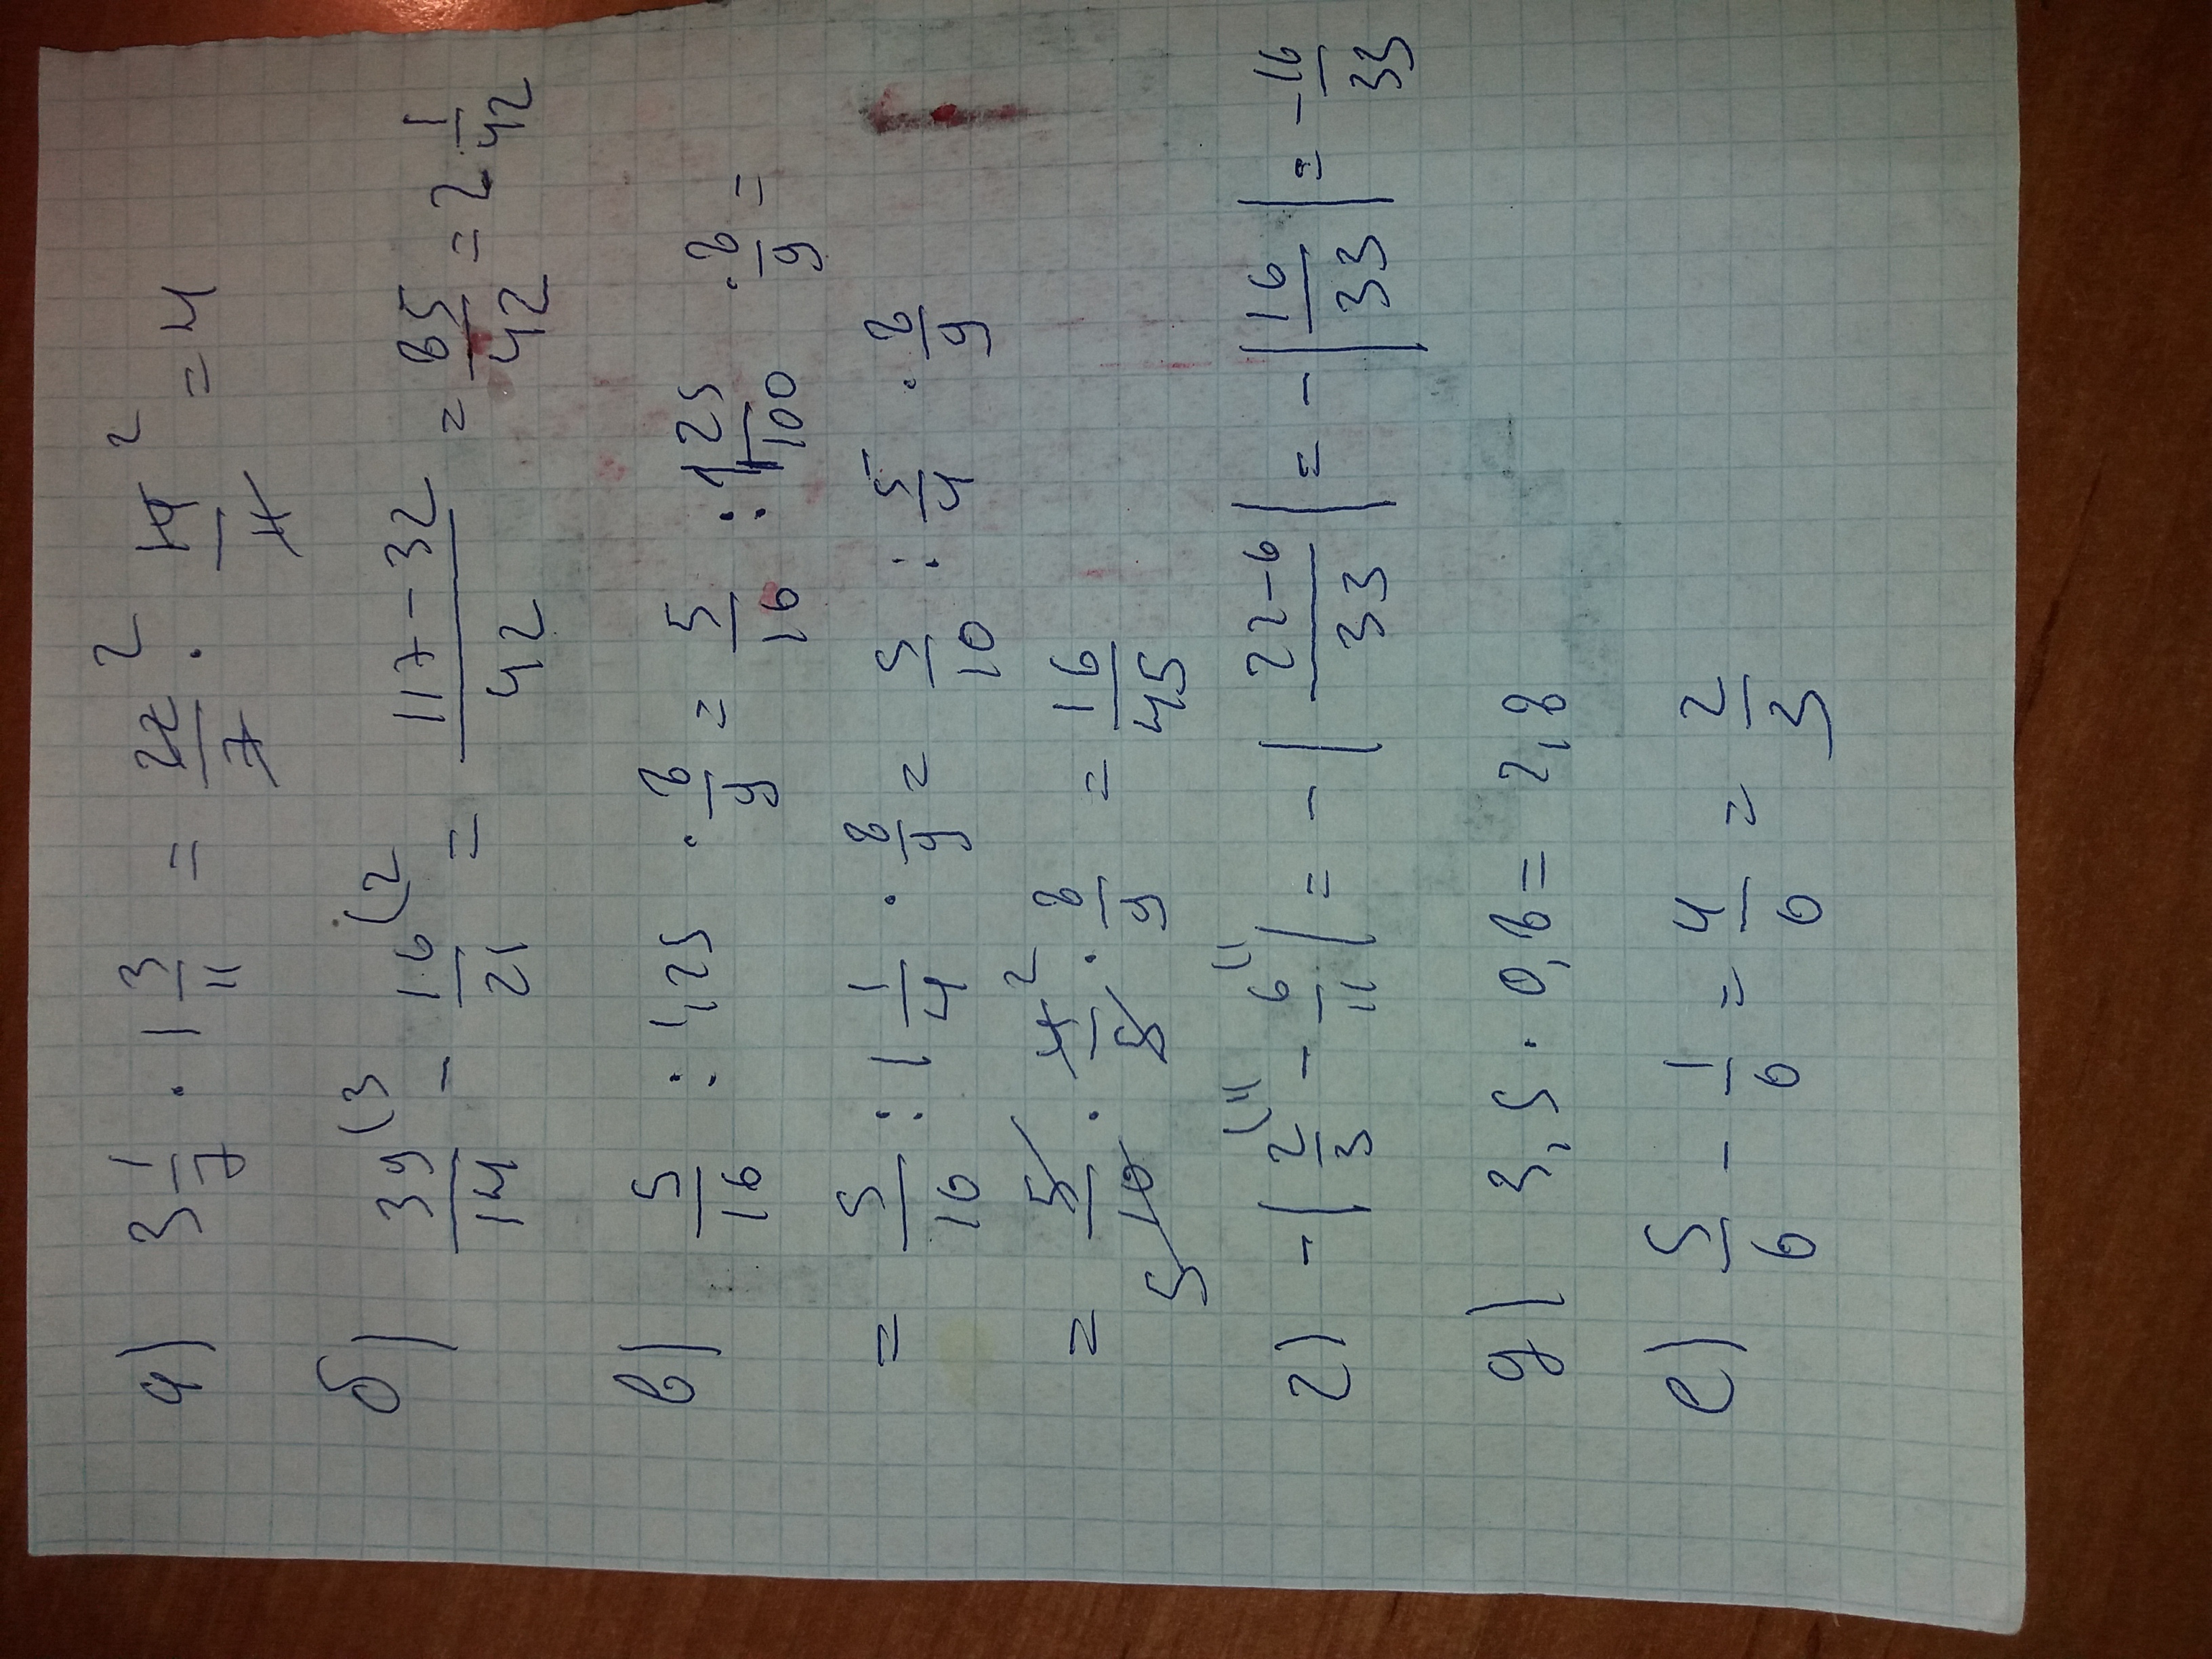 а) 3 1/7 · 1 3/11 = 22/7 2 · 14/11 2 = 4
б) 39/14 (3 - 16/21 (2 = 117-32/42 = 85/42 = 2 1/42
в) 5/16 : 1,25 · 8/9 = 5/16 : 1 25/100 · 8/9 =
= 5/10 : 1 1/4 · 8/9 = 5/10 : 5/4 · 8/9
= 5/10 5 · 4/5 2 · 8/9 = 16/45
г) -|2/3 (11 - 6/11 (1| = -|22-6/33| = -|16/33| = -16/33
д) 3,5 · 0,8 = 2,8
е) 5/6 - 1/6 = 4/6 = 2/3